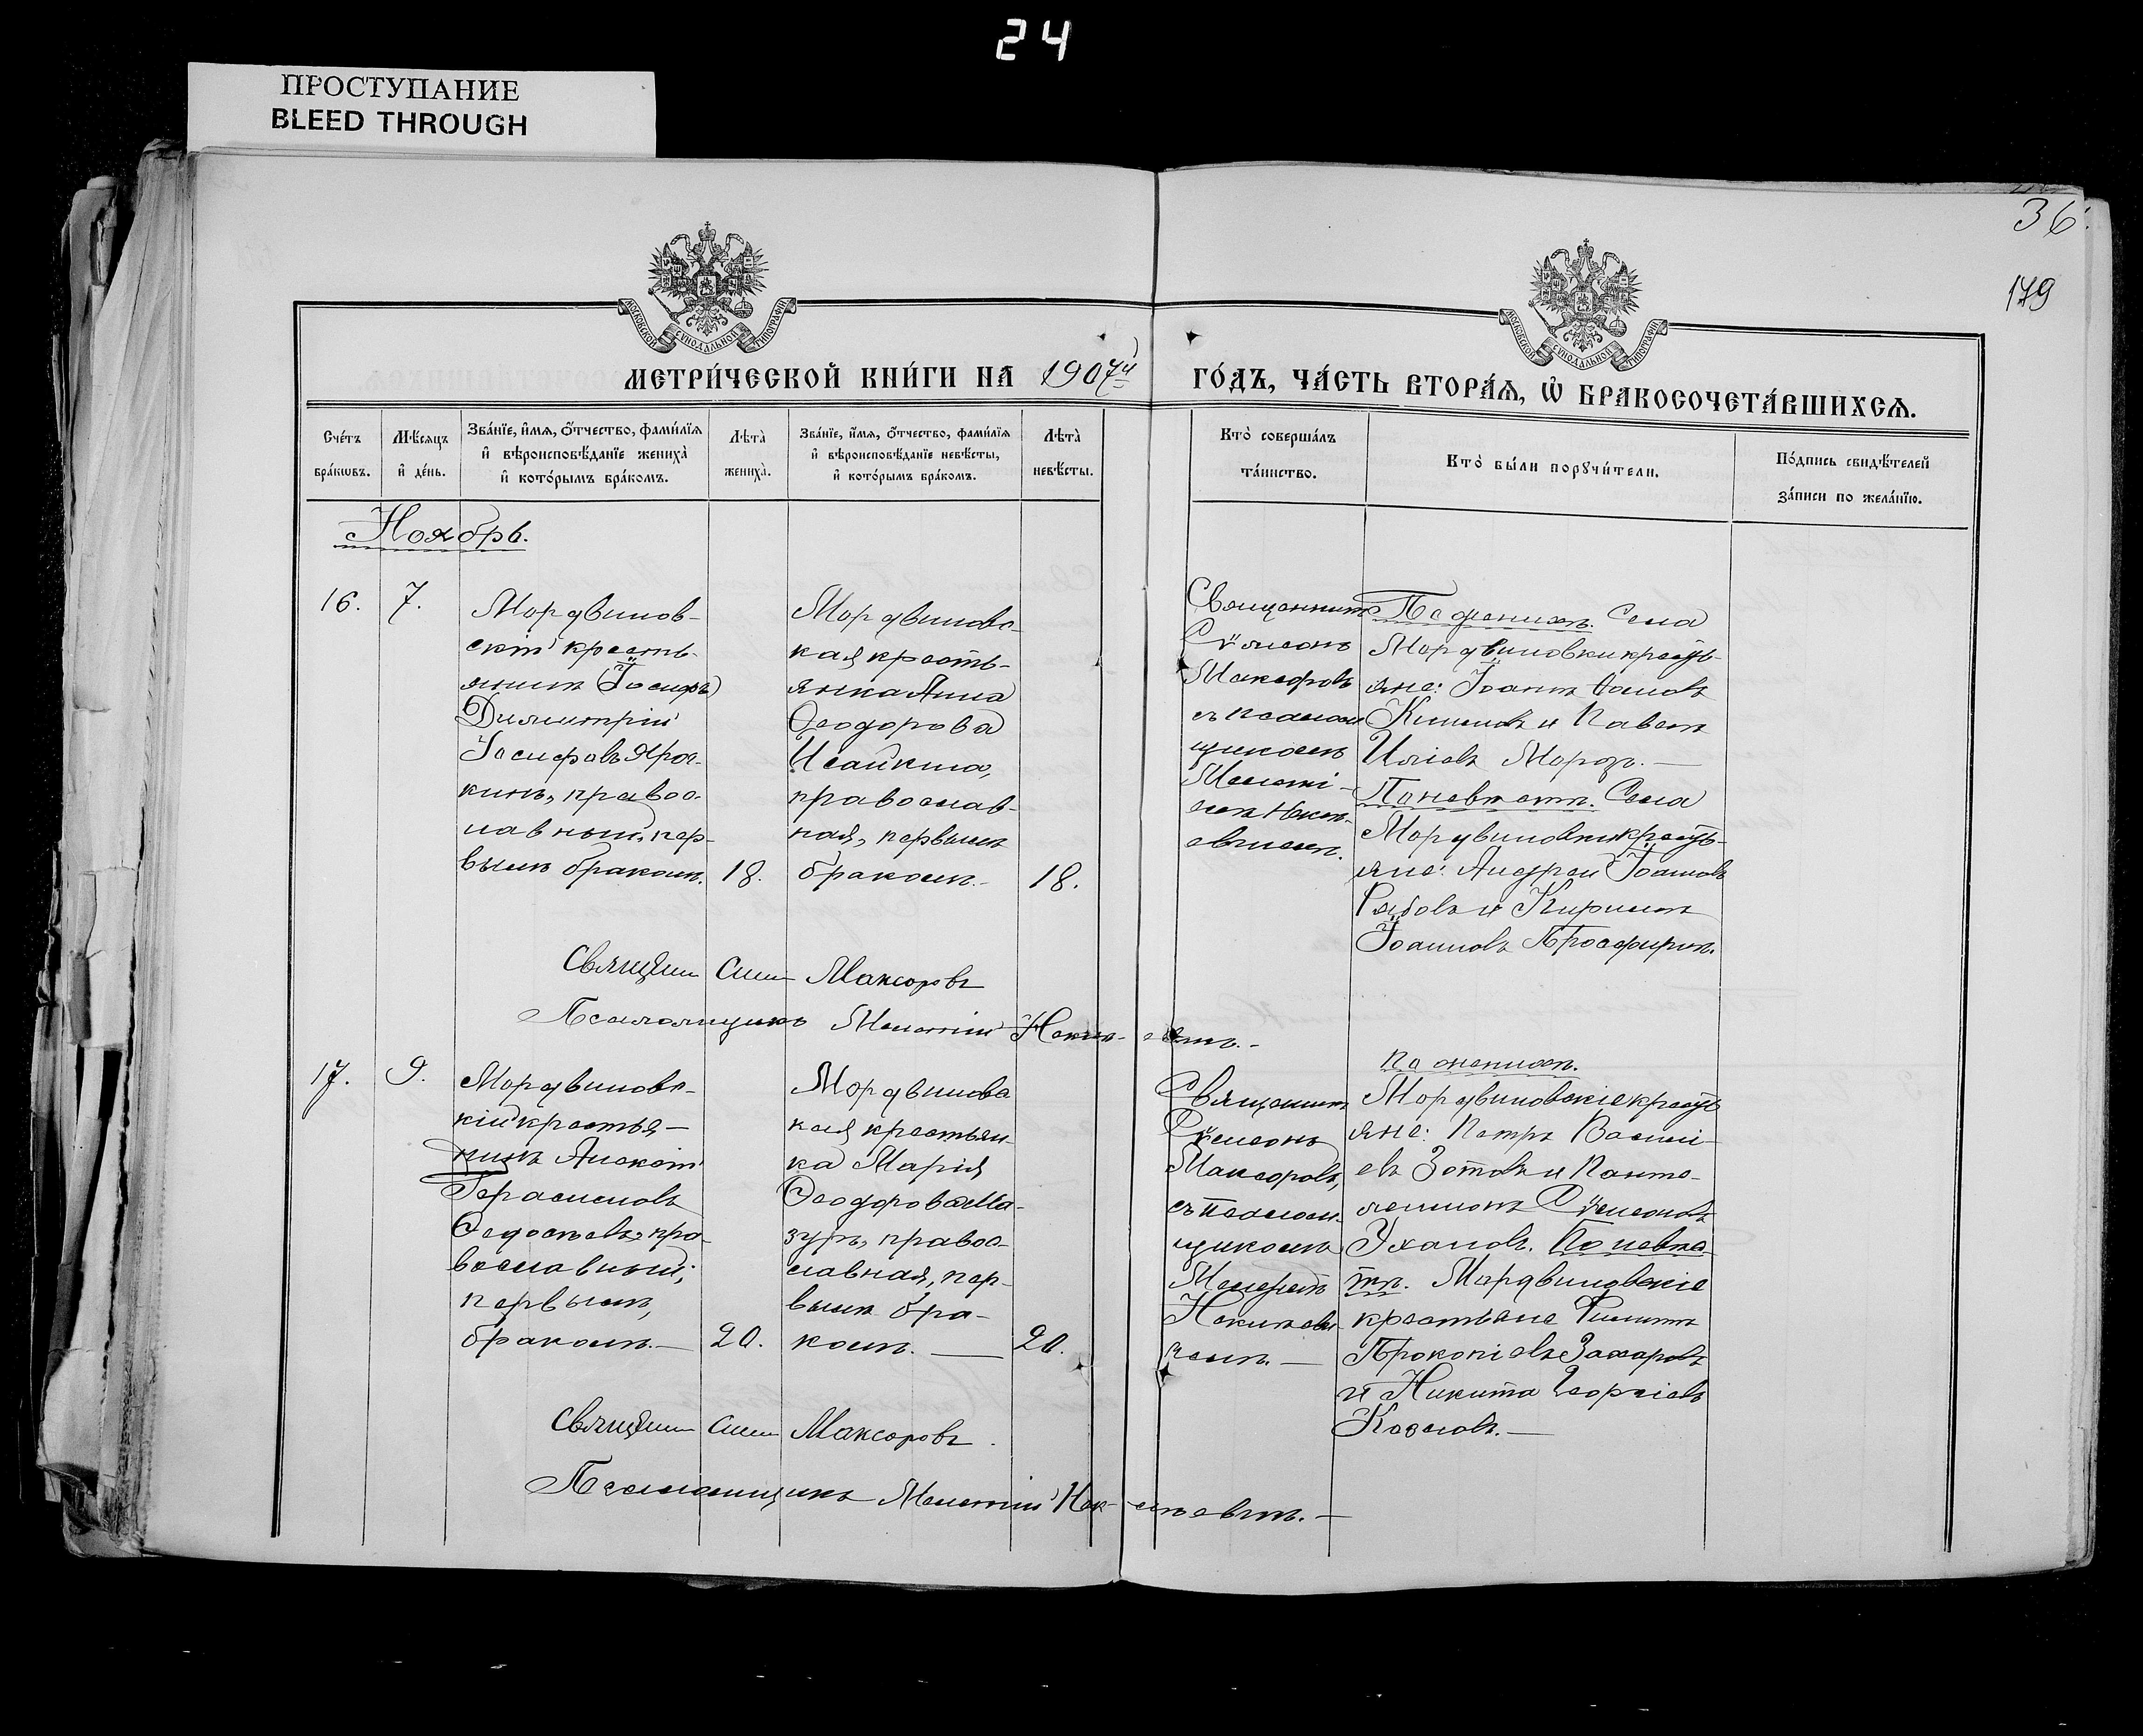 24
ПРОСТУПАНИЕ
BLEED THROUGH
36.
179
МОСКОВСКОЙ СѴНОДАЛЬНОЙ ТИПОГРАФІИ
МОСКОВСКОЙ СѴНОДАЛЬНОЙ ТИПОГРАФІИ
МЕТРИ́ЧЕСКОЙ КНИ́ГИ НА 1907й ГО́ДЪ, ЧА́СТЬ ВТОРА́Я, Ѡ БРАКОСОЧЕТА́ВШИХСЯ.
Сче́тъ
бра́ковъ.
Мѣ́сяцъ
и҆ де́нь.
Зва́нїе, и҆́мя, ѻ҆́тчество, фами́лїя
и҆ вѣроисповѣ́данїе жениха̀
и҆ кото́рымъ бра́комъ.
Лѣта̀
жениха̀.
Зва́нїе, и҆́мя, ѻ҆́тчество, фами́лїя
и҆ вѣроисповѣ́данїе невѣ́сты,
и҆ кото́рымъ бра́комъ.
Лѣта̀
невѣ́сты.
Кто̀ соверша́лъ
та́инство.
Кто̀ бы́ли порꙋчи́тели.
По́дпись свидѣ́телей
за́писи по жела́нїю.
Ноябрь.
16.
7.
Мордвинов-
скій кресть-
янинъ (Іосифъ)
Димитрій
Іосифовъ
кинъ, правос-
лавный, пер-
вымъ бракомъ.
18.
Мордвиновс-
кая кресть-
янка Анна
Ѳеодорова
Исайкина,
православ-
ная, первымъ
бракомъ.-
18.
Священникъ
Сѵмеонъ
Максоровъ
съ псалом
щикомъ
Мелеті-
емъ
По женихѣ. Села
Мордвиновки кресть-
яне: Іоаннъ
и Павелъ
Иліевъ Морозъ. —
По невѣстѣ. Села
Мордвиновки кресть-
яне: Андрей Іоанновъ
Рябовъ и Кириллъ
Іоанновъ
Священ Сим Максоровъ
Псаломщикъ Мелетій
17.
9.
Мордвиновс-
кій крестья-
нинъ
Герасимовъ
пра-
вославный,
первымъ,
бракомъ.—
20.
Мордвинова
кая крестьян-
ка Марія
Ѳеодорова Ма-
зуръ, правос-
лавная, пер-
вымъ бра-
комъ. —
20.
Священникъ
Сѵмеонъ
Максоровъ,
съ псалом-
щикомъ
чемъ. —
По женихѣ.
Мордвиновскіе кресть
яне: Петръ Василі-
евъ Зотовъ и Панте-
леимонъ Сѵмеоновъ
Ухановъ. По невѣс-
тѣ. Мордвиновскіе
крестьяне Филиппъ
Прокопіевъ Захаровъ
и Никита Георгіевъ
Козловъ. —
Священ Сим Максоровъ.
Псаломщикъ Мелетій